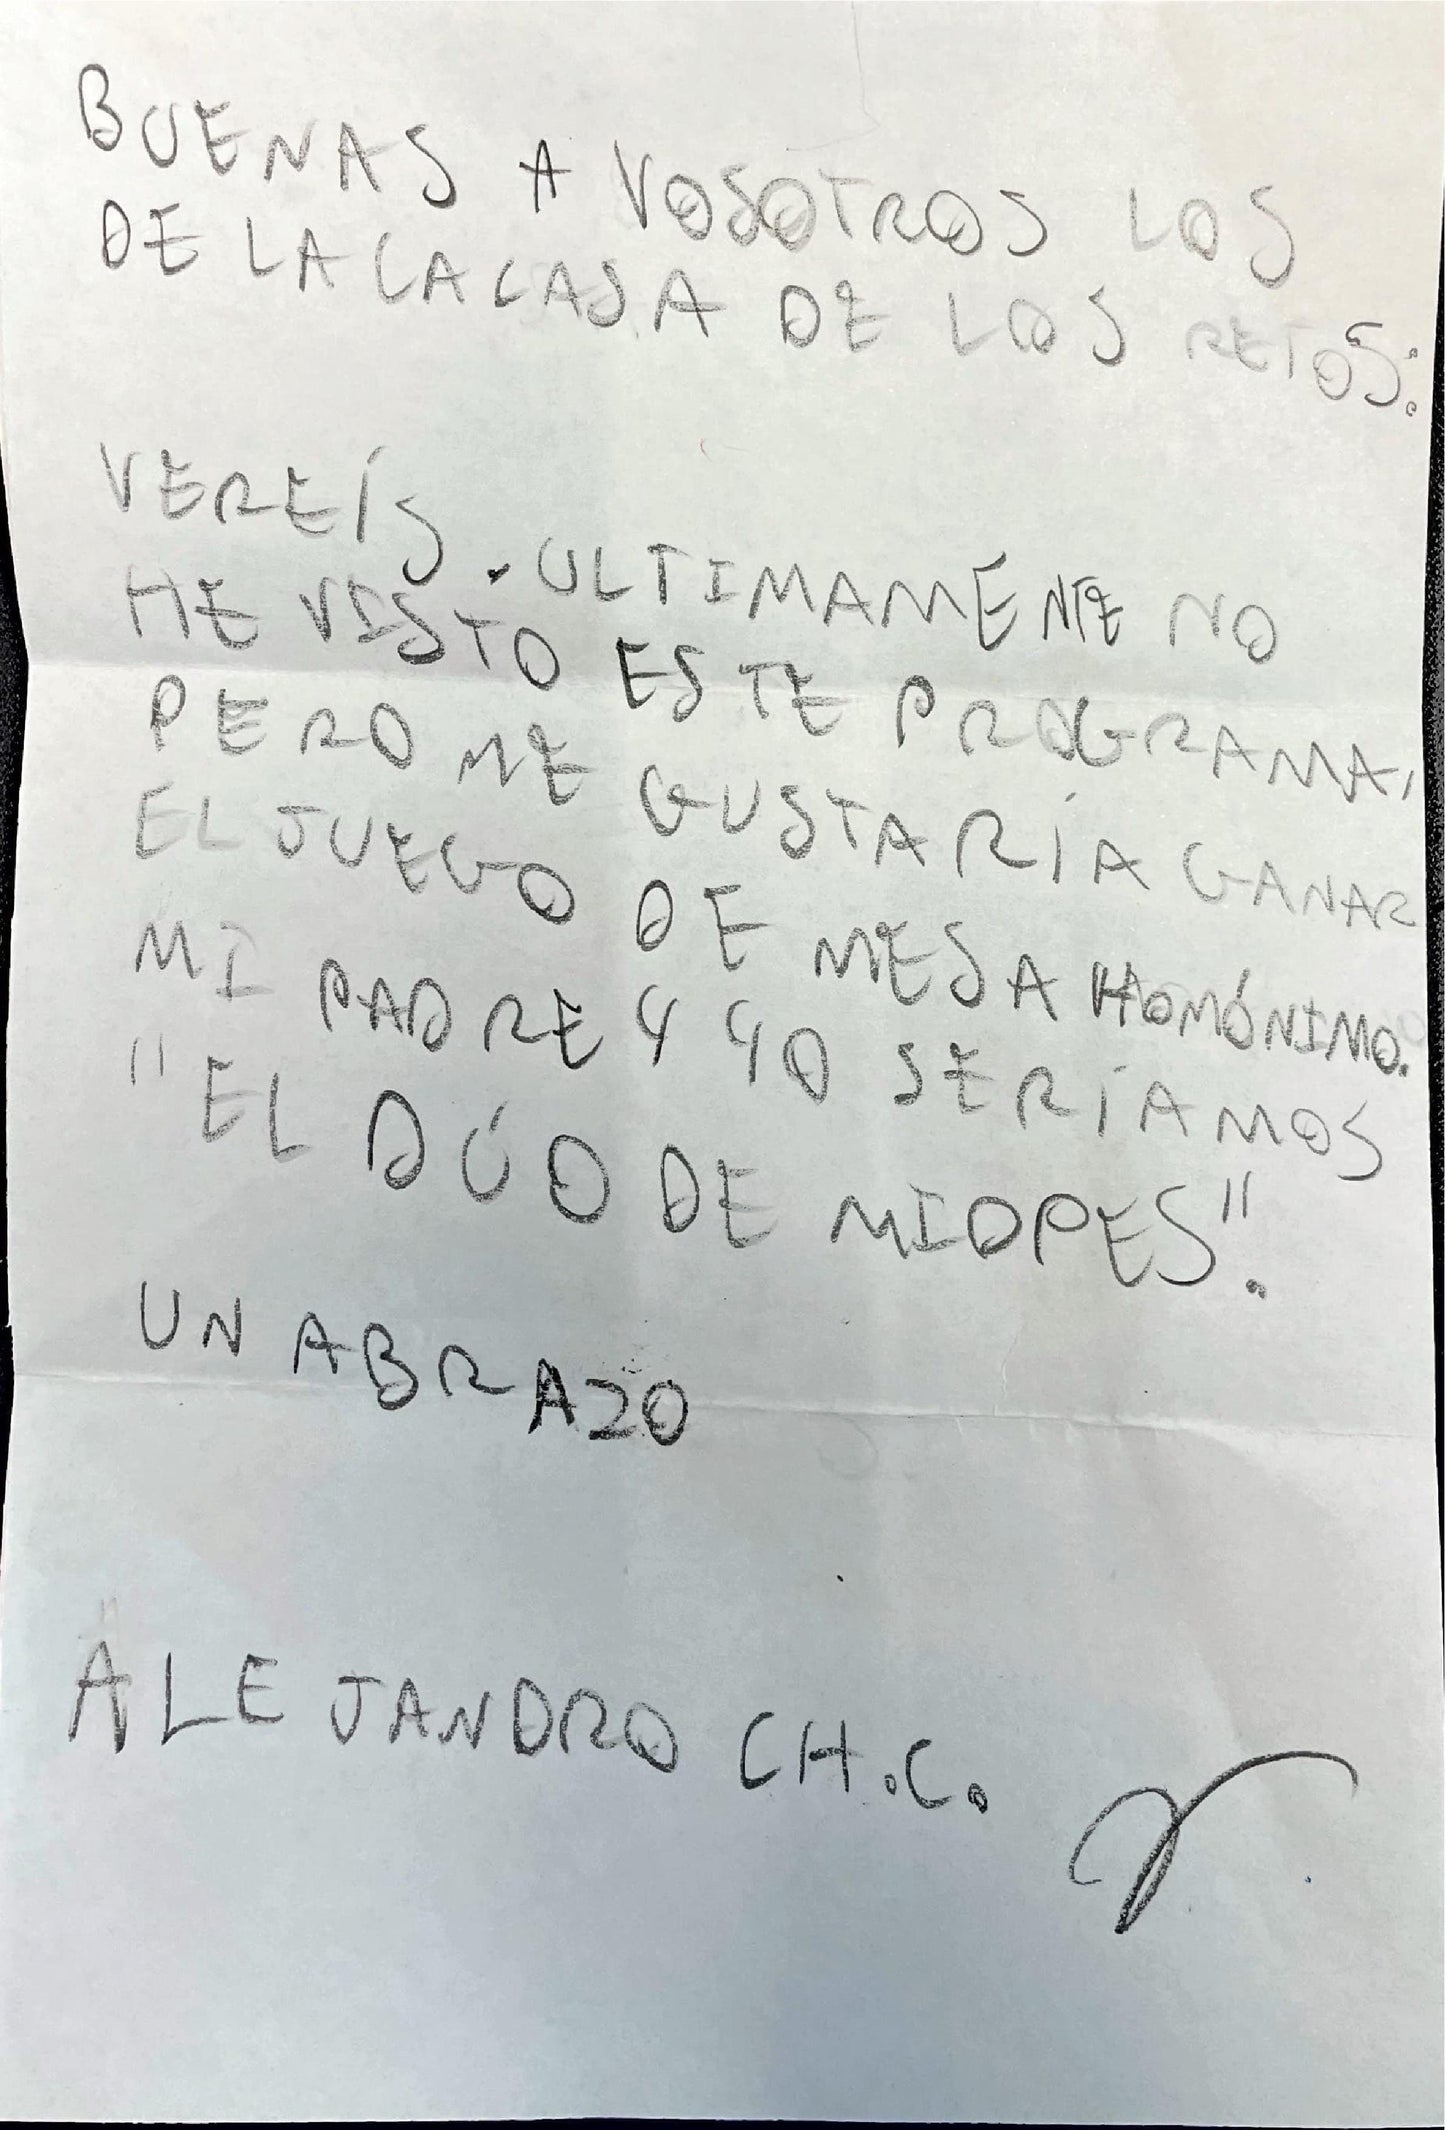 BUENAS A VOSOTROS LOS
DE LA CA CASA DE LOS RETOS:
VEREÍS. ULTIMAMENTE NO
HE VISTO ESTE PROGRAMA,
PERO ME GUSTARÍA GANAR
EL JUEGO DE MESA HOMÓNIMO.
MI PADRE Y YO SERÍAMOS
"EL DÚO DE MIOPES".
UN ABRAZO
ALEJANDRO CH.C.